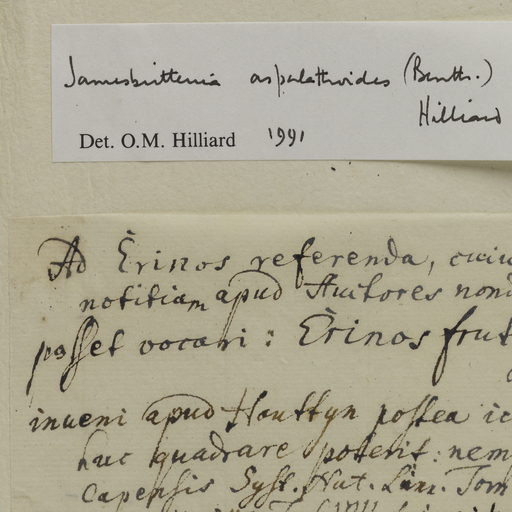 Jamesbrittenia aspalathoides (Benth.)
Hilliard
Det. O.M. Hilliard 1991
Ad Erinos referenda, cuiu
notitiam apud Auctores nond
posset vocari: Erinos frut
inveni apud Houttyn postea ic
huc quadrare poterit: nem
capensis Syst. Nat. Linn. Tom